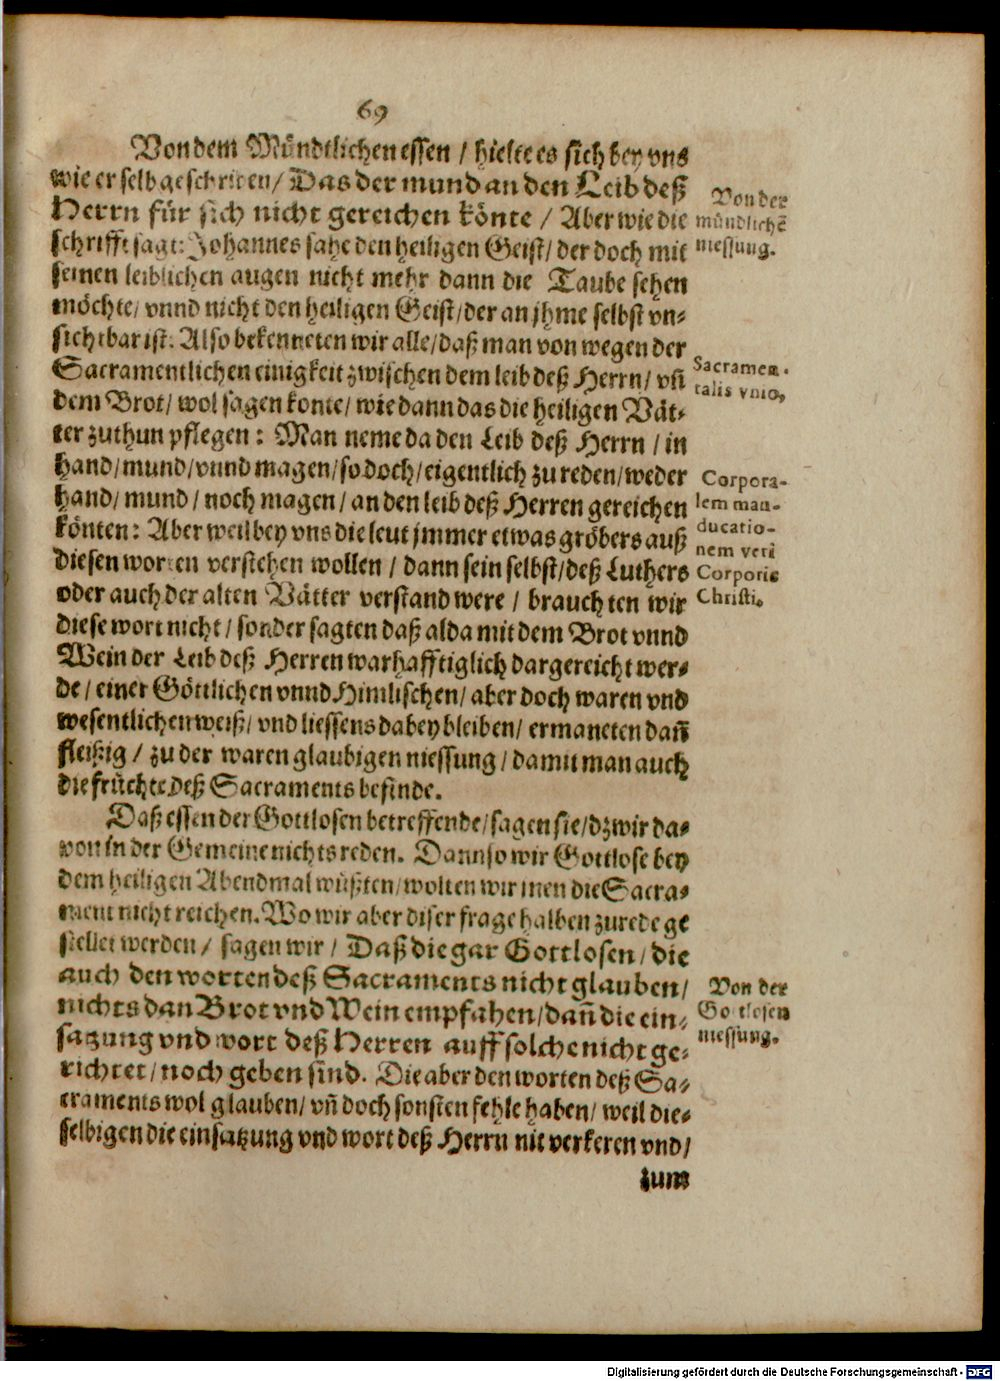 69
Von dem Mündtlichen essen / hielte es sich bey vns
wie er selb geschriben / Das der mund an den Leib deß
Herrn für sich nicht gereichen könte / Aber wie die
schrifft sagt: Johannes sahe den heiligen Geist / der doch mit
seinen leiblichen augen nicht mehr dann die Taube sehen
möchte / vnnd nicht den heiligen Geist / der an jhme selbst vn-
sichtbar ist. Also bekenneten wir alle / daß man von wegen der
Sacramentlichen einigkeit zwischen dem leib deß Herrn / vñ
dem Brot / wol sagen konte / wie dann das die heiligen Vät-
ter zuthun pflegen: Man neme da den Leib deß Herrn / in
hand / mund / vnnd magen / so doch / eigentlich zu reden / weder
hand / mund / noch magen / an den leib deß Herren gereichen
könten: Aber weil bey vns die leut jmmer etwas gröbers auß
diesen worten verstehen wollen / dann sein selbst / deß Luthers
oder auch der alten Vätter verstand were / brauchten wir
diese wort nicht / sonder sagten daß alda mit dem Brot vnnd
Wein der Leib deß Herren warhafftiglich dargereicht wer-
de / einer Göttlichen vnnd Himlischen / aber doch waren vnd
wesentlichen weiß / vnd liessens dabey bleiben / ermaneten dañ
fleißig / zu der waren glaubigen niessung / damit man auch
die früchte deß Sacraments befinde.
Daß essen der Gottlosen betreffende / sagen sie / dz wir da-
von in der Gemeine nichts reden. Dann so wir Gottlose bey
dem heiligen Abendmal wüßten / wolten wir jnen die Sacra-
ment nicht reichen. Wo wir aber diser frage halben zurede ge
stellet werden / sagen wir / Daß die gar Gottlosen / die
auch den worten deß Sacraments nicht glauben /
nichts dan Brot vnd Wein empfahen / dañ die ein-
satzung vnd wort deß Herren auff solche nicht ge-
richtet / noch geben sind. Die aber den worten deß Sa-
craments wol glauben / vñ doch sonsten fehle haben / weil die-
selbigen die einsatzung vnd wort deß Herrn nit verkeren vnd /
zum
Von der
mündlichē
niessung.
Sacramen-
talis vnio,
Corpora-
lem man-
ducatio-
nem veri
Corporis
Christi.
Von der
Gottlosen
niessung.
Digitalisierung gefördert durch die Deutsche Forschungsgemeinschaft - DFG